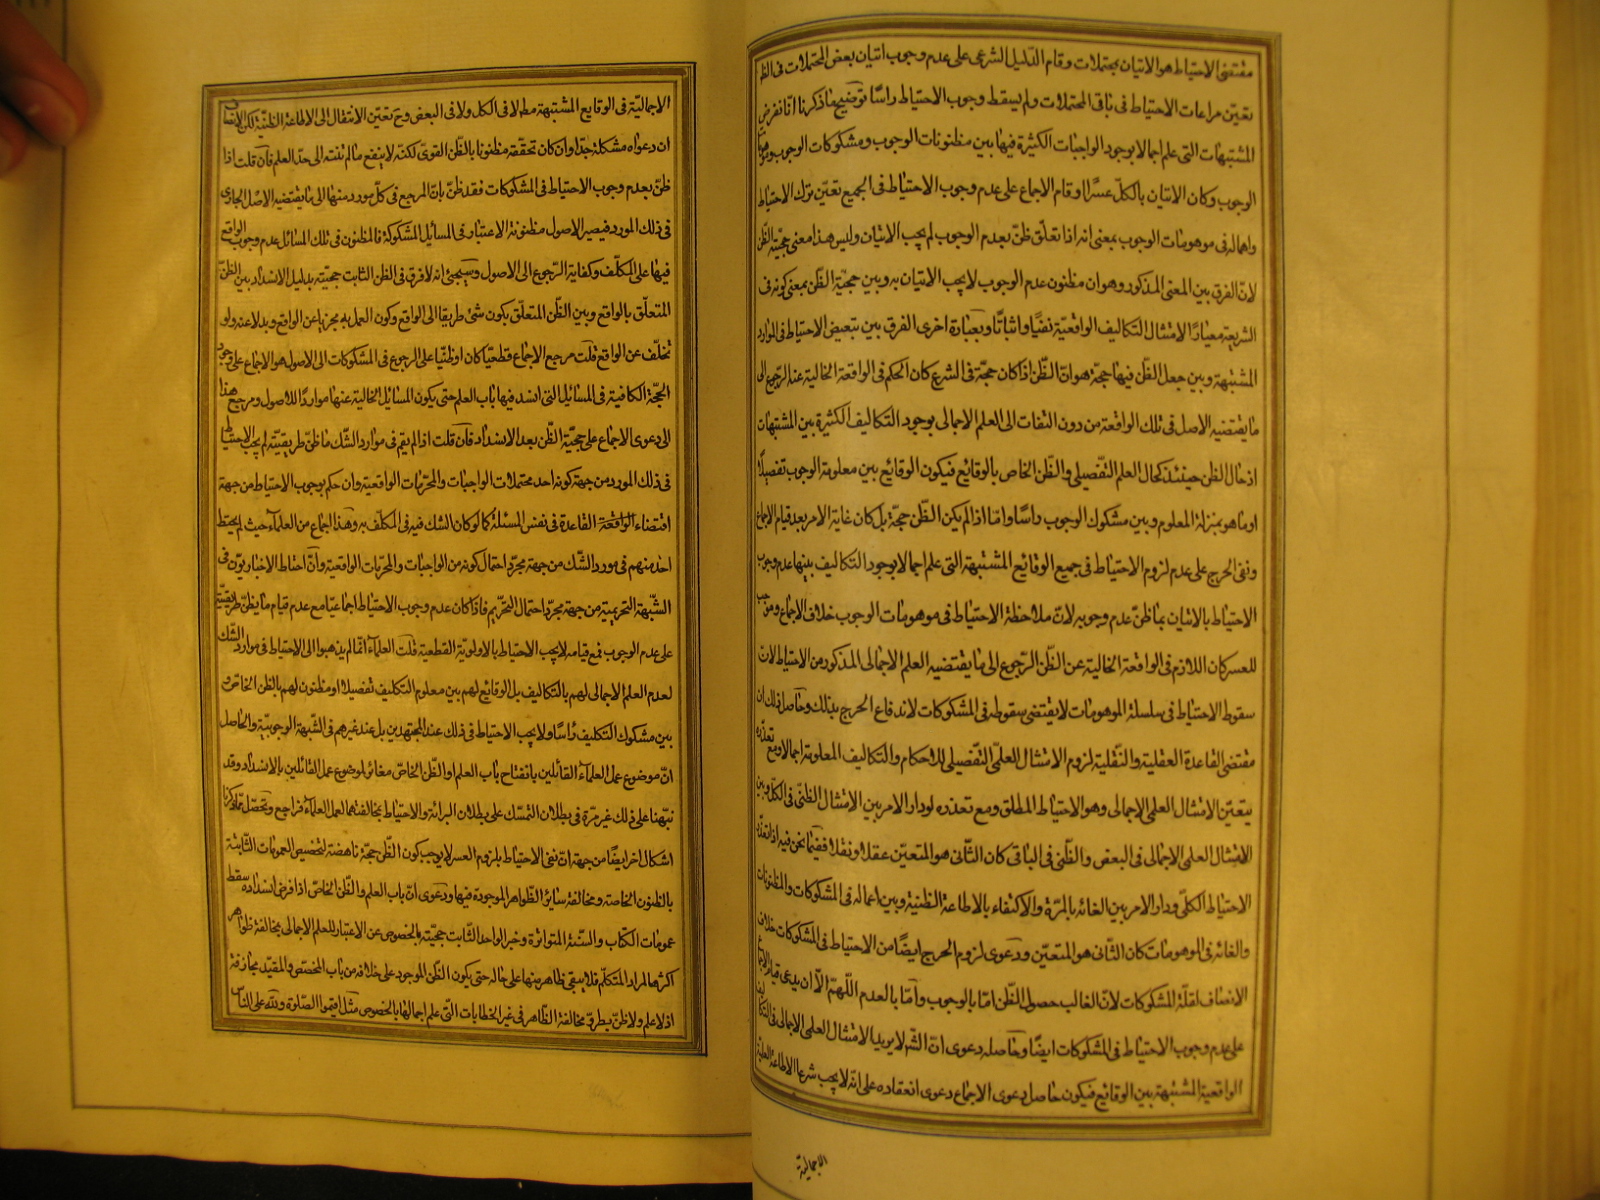 مقتضى الاحتياط هو الاتيان بمحتملات وقام الدليل الشرعى على عدم وجوب اتيان بعض المحتملات فى الظ
تعين مراعات الاحتياط فى باقى المحتملات ولم يسقط وجوب الاحتياط راسًا توضيح ما ذكرنا انّا نفرض
المشتبهات التى علم اجمالا بوجود الواجبات الكثيرة فيها بين مظنونات الوجوب ومشكوكات الوجوب
الوجوب وكان الاتيان بالكل عسرًا او قام الاجماع على عدم وجوب الاحتياط فى الجميع تعيّن ترك الاحتياط
واهماله فى موهومات الوجوب بمعنى انه اذا تعلّق ظنّ بعدم الوجوب لم يجب الاتيان وليس هذا معنى حجية الظنّ
لانّ الفرق بين المعنى المذكور وهو ان مظنون عدم الوجوب لا يجب الاتيان به وبين حجيّة الظنّ بمعنى كونه فى
الشريعة معيارًا لامتثال التكاليف الواقعيّة نفيًا واثباتًا وبعبارة اخرى الفرق بين تبعيض الاحتياط فى الموارد
المشتبهة وبين جعل الظنّ فيها حجة هو انّ الظنّ اذا كان حجّة فى الشرع كان الحكم فى الواقعة الخالية عنه الرّجوع الى
ما يقتضيه الاصل فى تلك الواقعة من دون التفات الى العلم الاجمالى بوجود التكاليف الكثيرة بين المشتبهات
اذ حال الظن حينئذ كحال العلم التفصيلى والظّن الخاص بالوقائع فيكون الوقائع بين معلومة الوجوب تفصيلًا
او ما هو بمنزلة المعلوم وبين مشكوك الوجوب راسًا وامّا اذا لم يكن الظّن حجّة بل كان غاية الامر بعد قيام الاجماع
ونفى الحرج على عدم لزوم الاحتياط فى جميع الوقائع المشتبهة التى علم اجمالا بوجود التكاليف بينها عدم وجوب
الاحتياط بالاتيان بما ظنّ عدم وجوبه لانّ ملاحظة الاحتياط فى موهومات الوجوب خلاف الاجماع وموجب
للعسر كان اللازم فى الواقعة الخالية عن الظن الرّجوع الى ما يقتضيه العلم الاجمالى المذكور من الاحتياط لانّ
سقوط الاحتياط فى سلسلة الموهومات لا يقتضى سقوطه فى المشكوكات لاندفاع الحرج بذلك وحاصل ذلك ان
مقتضى القاعدة العقلية والنقلية لزوم الامتثال العلمى التفصيلى للاحكام والتكاليف المعلومة اجمالا ومع تعذّره
يتعيّن الامتثال العلمى الاجمالى وهو الاحتياط المطلق ومع تعذره لو دار الامر بين الامتثال الظنى فى الكل وبين
الامتثال العلمى الاجمالى فى البعض والظّنى فى الباقى كان الثّانى هو المتعيّن عقلا ونقلا ففيما نحن فيه اذا تعذّر
الاحتياط الكلّى ودار الامر بين الغائه بالمرّة والاكتفاء بالاطاعة الظنية وبين اعماله فى المشكوكات والمظنونات
والغائه فى الموهومات كان الثّانى هو المتعيّن ودعوى لزوم الحرج ايضًا من الاحتياط فى المشكوكات خلاف
الانصاف لقلّة المشكوكات لانّ الغالب حصول الظّن امّا بالوجوب وامّا بالعدم اللّهمّ الّا ان يدعى قيام الاجماع
على عدم وجوب الاحتياط فى المشكوكات ايضًا وحاصله دعوى انّ الشّ لا يريد الامتثال العلمى الاجمالى فى التكا ليف
الواقعية المشتبهة بين الوقائع فيكون حاصل دعوى الاجماع دعوى انعقاده على انّه لا يجب شرعا الاطاعة العلمية
الاجماليّة
الاجماليّة فى الوقايع المشتبهة مط لا فى الكل ولا فى البعض وح تعيّن الانتقال الى الاطاعة الظنّية لكن الانصاف
ان دعواه مشكلة جدّا وان كان تحقّقه مظنونا بالظّن القوى لكنّه لا ينفع ما لم ينته الى حدّ العلم فان قلت اذا
ظنّ بعدم وجوب الاحتياط فى المشكوكات فقد ظنّ بانّ المرجع فى كلّ مورد منها الى ما يقتضيه الاصل الجارى
فى ذلك المورد فيصير الاصول مظنونة الاعتبار فى المسائل المشكوكة فالمظنون فى تلك المسائل عدم وجوب الواقع
فيها على المكلّف وكفاية الرّجوع الى الاصول وسيجئ انه لا فرق فى الظن الثابت حجيّته بدليل الانسداد بين الظنّ
المتعلّق بالواقع وبين الظّن المتعلق بكون شئ طريقا الى الواقع وكون العمل به مجزيا عن الواقع وبدلا عنه ولو
تخلّف عن الواقع قلت مرجع الاجماع قطعيّا كان او ظنّيا على الرجوع فى المشكوكات الى الاصول هو الاجماع على وجود
الحجّة الكافية فى المسائل التى انسد فيها باب العلم حتى يكون المسائل الخالية عنها مواردًا للاصول ومرجع هذا
الى دعوى الاجماع على حجيّة الظّن بعد الانسداد فان قلت اذا لم يقم فى موارد الشّك ما ظنّ طريقيّته لم يجب الاحتياط
فى ذلك المورد من جهة كونه احد محتملات الواجبات والمحرّمات الواقعيّة وان حكم بوجوب الاحتياط من جهة
اقتضاء الواقعة القاعدة فى نفس المسئلة كما لو كان الشك فيه فى المكلّف به وهذا اجماع من العلماء حيث لم يحتط
احد منهم فى مورد الشّك من جهة مجرّد احتمال كونه من الواجبات والمحرّمات الواقعيّة وانّ احتاط الاخباريّون فى
الشّبهة التحريميّة من جهة مجرّد احتمال التحريم فاذا كان عدم وجوب الاحتياط اجماعيّا مع عدم قيام ما يظنّ طريقيّته
على عدم الوجوب فمع قيامه لا يجب الاحتياط بالاولويّة القطعيّة قلت العلماء انّما لم يذهبوا الى الاحتياط فى موارد الشّك
لعدم العلم الاجمالى لهم بالتكاليف بل الوقائع لهم بين معلوم التكليف تفصيلا او مظنون لهم بالظن الخاصّ و
بين مشكوك التكليف رأسًا ولا يجب الاحتياط فى ذلك عند المجتهدين بل عند غيرهم فى الشّبهة الوجوبيّة والحاصل
انّ موضوع عمل العلماء القائلين بانفتاح باب العلم او الظّن الخاصّ مغائر لموضوع عمل القائلين بالانسداد وقد
نبّهنا على ذلك غير مرّة فى بطلان التمسّك على بطلان البرائة والاحتياط بمخالفتهما لعمل العلماء فراجع وتحصّل ممّا ذكرنا
اشكال اخر ايضًا من جهة انّ نفى الاحتياط بلزوم العسر لا يوجب كون الظّن حجّة ناهضة لتخصيص العمومات الثّابتة
بالظنون الخاصة ومخالفة سائر الظّواهر الموجودة فيها ودعوى انّ باب العلم والظّن الخاصّ اذا فرض انسداده سقط
عمومات الكتاب والسنّة المتواترة وخبر الواحد الثّابت حجيّته بالخصوص عن الاعتبار للعلم الاجمالى بمخالفة ظواهر
اكثرها لمراد المتكلّم فلا يبقى ظاهر منها على حاله حتى يكون الظّن الموجود على خلافه من باب المخصّص والمقيّد مجازفة
اذ لا علم ولا ظنّ بطروّ مخالفة الظّاهر فى غير الخطابات التّى علم اجمالها بالخصوص مثل اقيموا الصّلوة ولله على النّاس